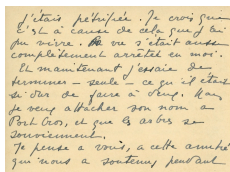 j'étais pétrifiée. Je crois que
c'est à cause de cela que j'ai
pu vivre. La vie s'était aussi
complètement arrêtée en moi.
Et maintenant j'essaie de
terminer - seule - ce qu'il était
si dur de faire à deux. Mais
je veux attacher son nom à
Port Cros, et que les arbres se
souviennent.
Je pense à vous, à cette amitié
qui nous a soutenus pendant